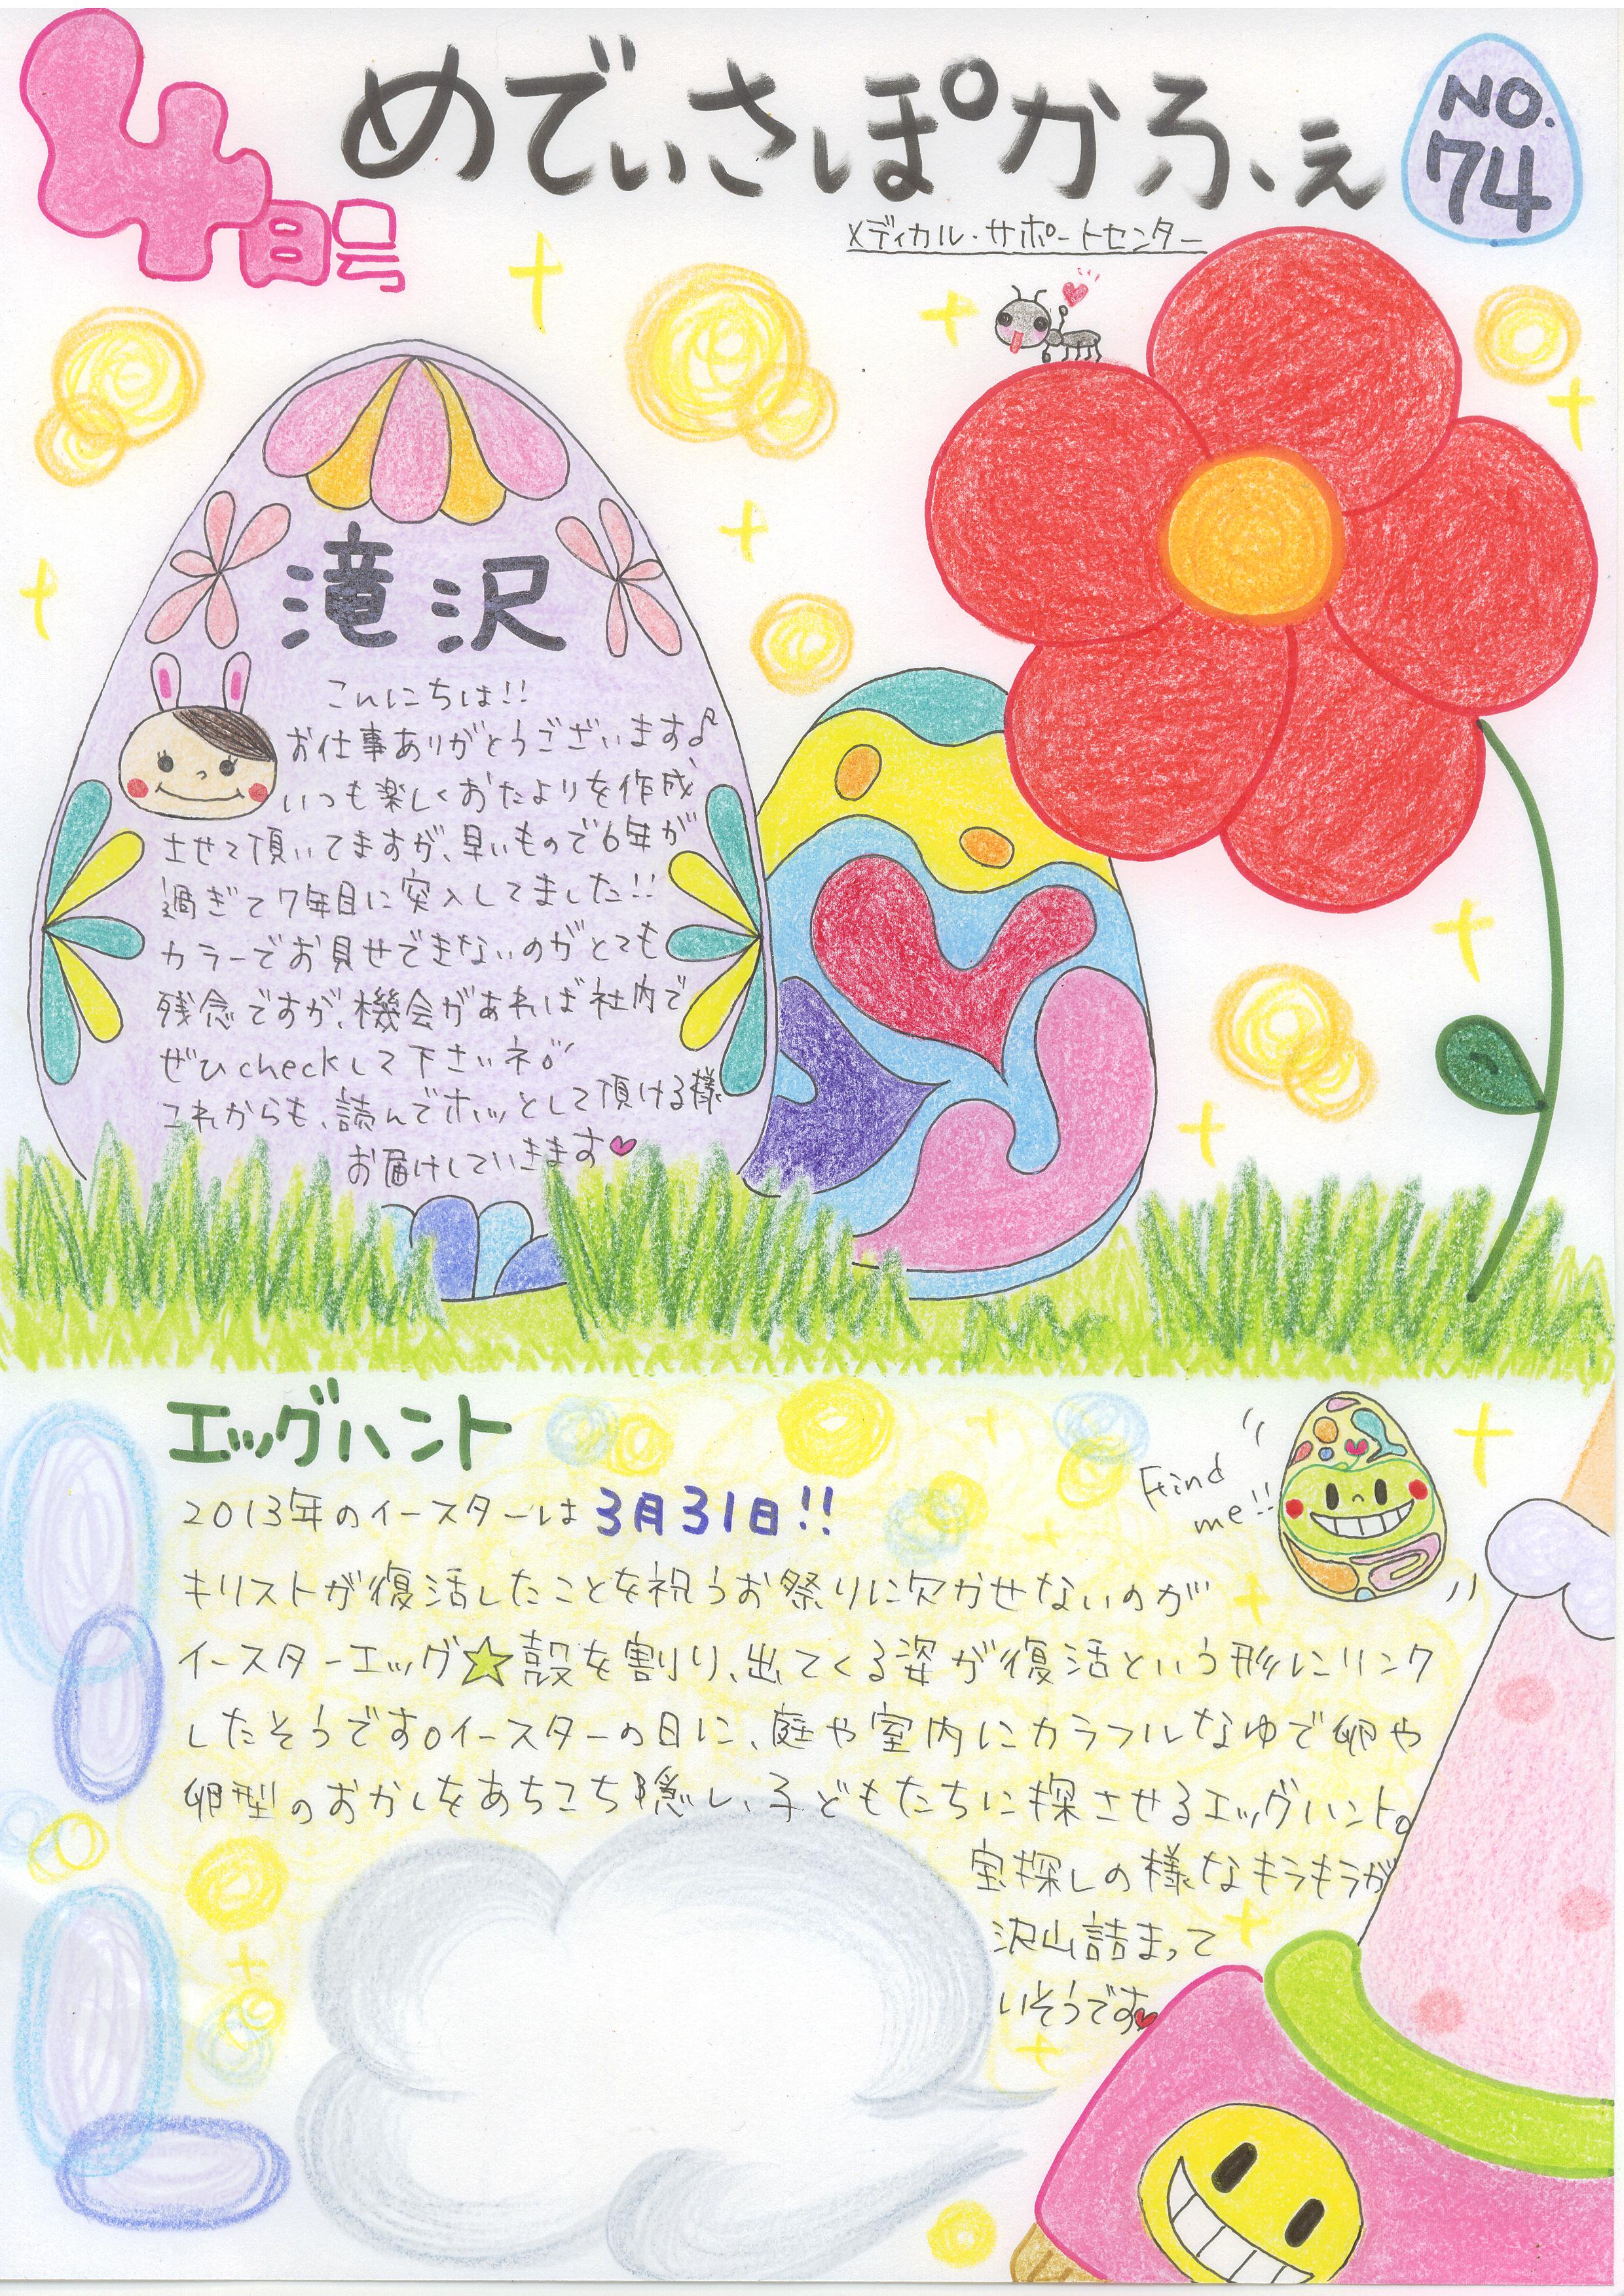 4月号
めでぃさぽかふぇ
NO.
74
メディカル・サポートセンター
滝沢
こんにちは!!
お仕事ありがとうございます♪
いつも楽しくおたよりを作成
させて頂いてますが、早いもので6年が
過ぎて7年目に突入してました!!
カラーでお見せできないのがとても
残念ですが、機会があれば社内で
ぜひcheckして下さいネ。
これからも、読んでホッとして頂ける様
お届けしていきます♥
エッグハント
2013年のイースターは3月31日!!
Find
me!!
キリストが復活したことを祝うお祭りに欠かせないのが
イースターエッグ☆殻を割り、出てくる姿が復活という形にリンク
したそうです。イースターの日に、庭や室内にカラフルなゆで卵や
卵型のおかしをあちこち隠し、子どもたちに探させるエッグハント。
宝探しの様なキラキラが
沢山詰まって
いそうです♥